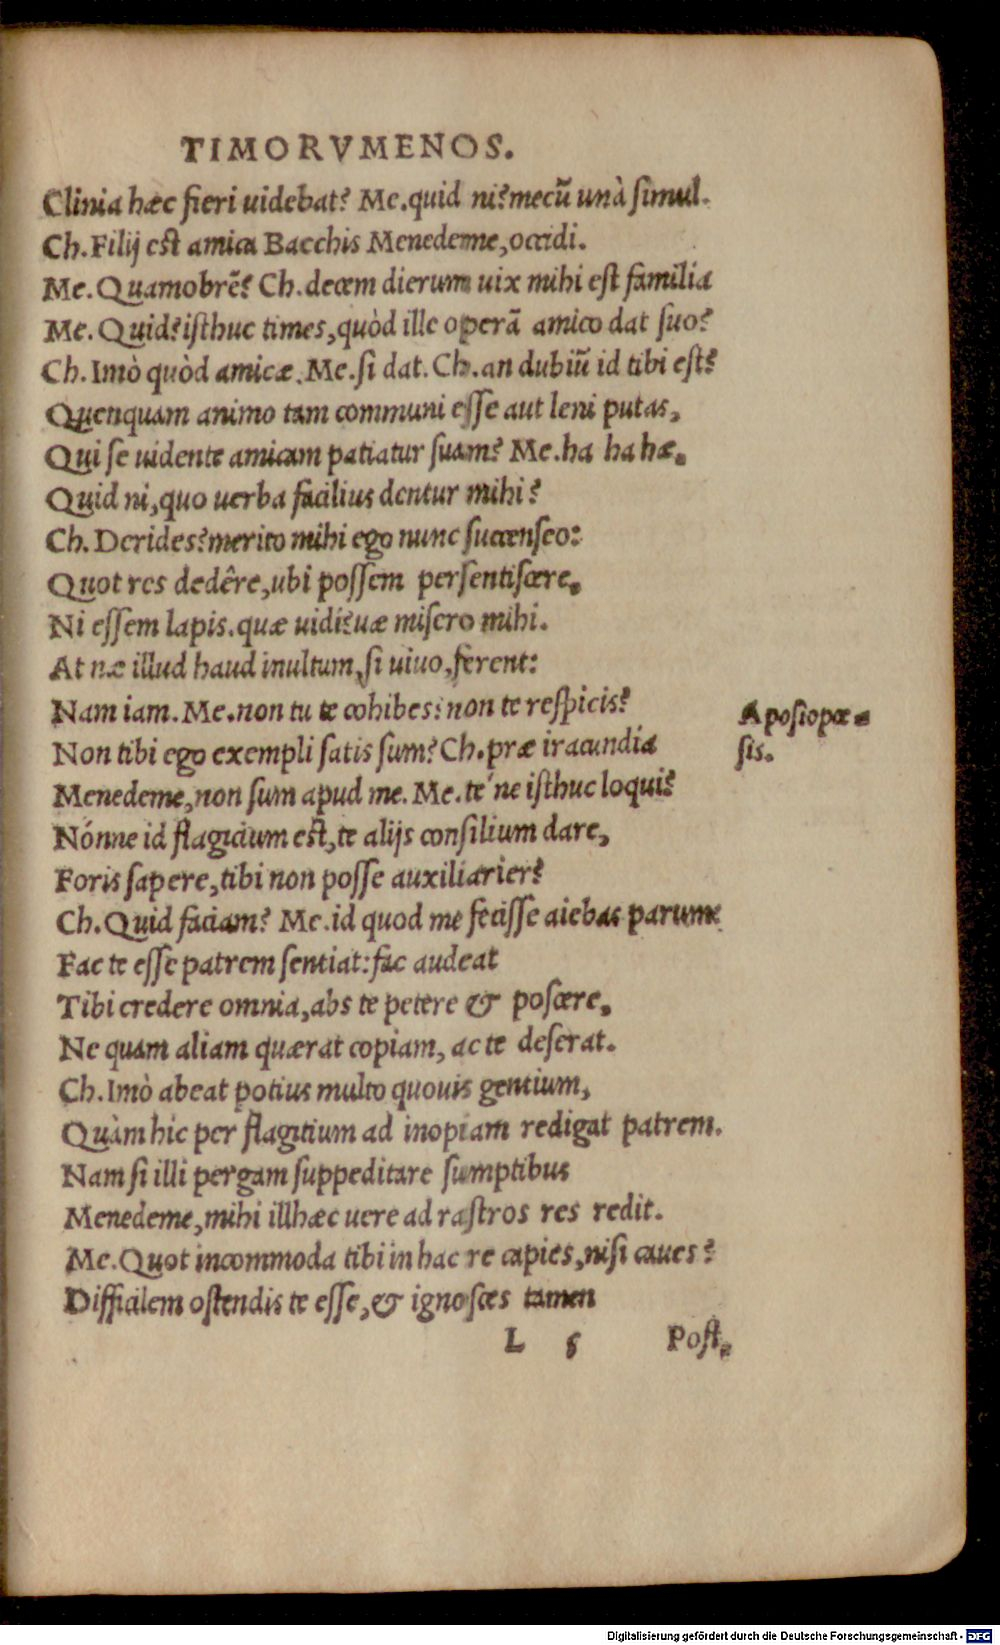 TIMORVMENOS.
Clinia hæc fieri uidebat? Me.quid ni?mecũ unà simul.
Ch.Filij est amica Bacchis Menedeme,occidi.
Me.Quamobrẽ? Ch.decem dierum uix mihi est familia
Me.Quid?isthuc times,quòd ille operã amico dat suo?
Ch.Imò quòd amicæ.Me.si dat.Ch.an dubiũ id tibi est?
Quenquam animo tam communi esse aut leni putas,
Qui se uidente amicam patiatur suam? Me.ha ha hæ.
Quid ni,quo uerba facilius dentur mihi?
Ch.Derides?merito mihi ego nunc succenseo:
Quot res dedêre,ubi possem persentiscere,
Ni essem lapis.quæ uidi?uæ misero mihi.
At næ illud haud inultum,si uiuo,ferent:
Nam iam.Me.non tu te cohibes?non te respicis?
Non tibi ego exempli satis sum?Ch.præ iracundia
Menedeme,non sum apud me.Me.té ne isthuc loqui?
Nónne id flagicium est,te alijs consilium dare,
Foris sapere,tibi non posse auxiliarier?
Ch.Quid faciam? Me.id quod me fecisse aiebas parum:
Fac te esse patrem sentiat:fac audeat
Tibi credere omnia,abs te petere & poscere,
Ne quam aliam quærat copiam, ac te deserat.
Ch.Imò abeat potius multo quouis gentium,
Quàm hic per flagitium ad inopiam redigat patrem.
Nam si illi pergam suppeditare sumptibus
Menedeme,mihi illhæc uere ad rastros res redit.
Me.Quot incommoda tibi in hac re capies,nisi caues?
Difficilem ostendis te esse,& ignosces tamen
L 5 Post,
Aposiopœ-
sis.
Digitalisierung gefördert durch die Deutsche Forschungsgemeinschaft - DFG